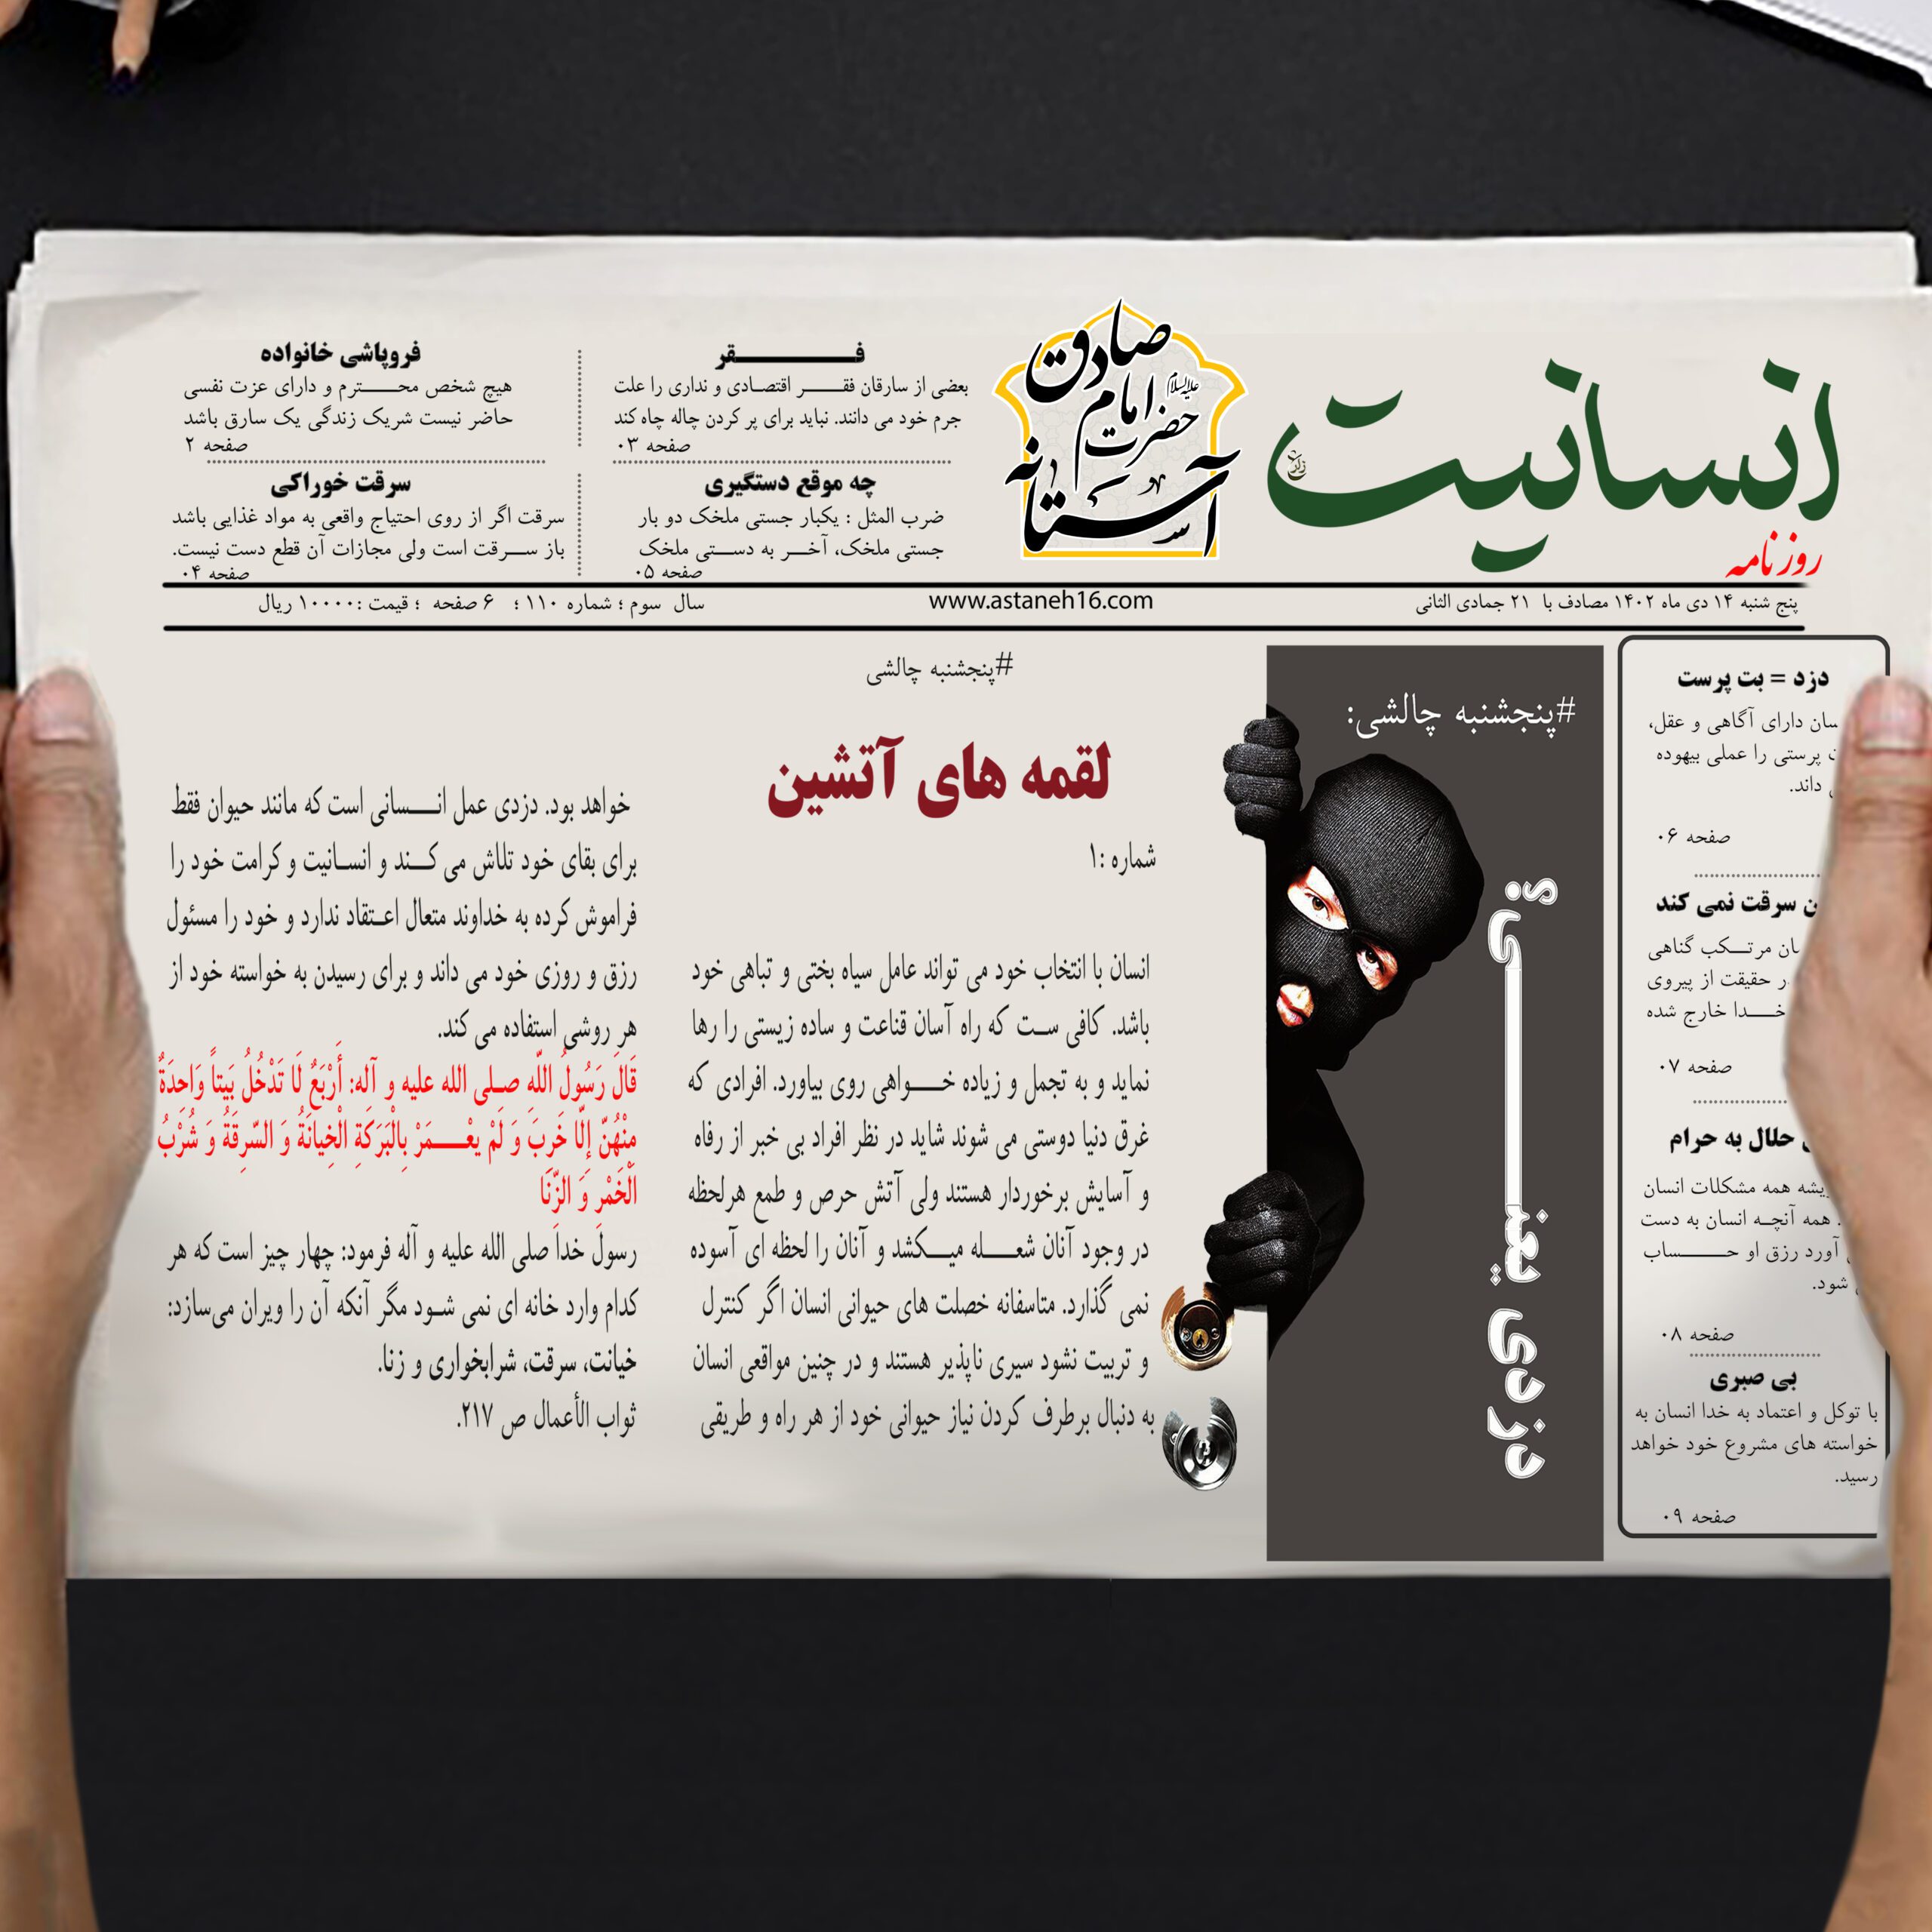 انسانیت
روزنامه
آستانه حضرت امام صادق علیه السلام
فقر
بعضی از سارقان فقر اقتصادی و نداری را علت
جرم خود می دانند. نباید برای پر کردن چاله چاه کند
صفحه ۰۳
فروپاشی خانواده
هیچ شخص محترم و دارای عزت نفسی
حاضر نیست شریک زندگی یک سارق باشد
صفحه ۲
چه موقع دستگیری
ضرب المثل : یکبار جستی ملخک دو بار
جستی ملخک، آخر به دستی ملخک
صفحه ۰۵
سرقت خوراکی
سرقت اگر از روی احتیاج واقعی به مواد غذایی باشد
باز سرقت است ولی مجازات آن قطع دست نیست.
صفحه ۰۴
پنج شنبه ۱۴ دی ماه ۱۴۰۲ مصادف با ۲۱ جمادی الثانی
www.astaneh16.com
سال سوم ؛ شماره ۱۱۰ ؛ ۶ صفحه ؛ قیمت :۱۰۰۰۰ ریال
دزد = بت پرست
دارای آگاهی و عقل،
پرستی را عملی بیهوده
داند.
صفحه ۰۶
سرقت نمی کند
مرتکب گناهی
حقیقت از پیروی
خدا خارج شده
صفحه ۰۷
حلال به حرام
ریشه همه مشکلات انسان
همه آنچه انسان به دست
آورد رزق او حساب
شود.
صفحه ۰۸
بی صبری
با توکل و اعتماد به خدا انسان به
خواسته های مشروع خود خواهد
رسید.
صفحه ۰۹
#پنجشنبه چالشی:
دزدی یعنی؟
#پنجشنبه چالشی
لقمه های آتشین
شماره :۱
انسان با انتخاب خود می تواند عامل سیاه بختی و تباهی خود
باشد. کافی ست که راه آسان قناعت و ساده زیستی را رها
نماید و به تجمل و زیاده خواهی روی بیاورد. افرادی که
غرق دنیا دوستی می شوند شاید در نظر افراد بی خبر از رفاه
و آسایش برخوردار هستند ولی آتش حرص و طمع هرلحظه
در وجود آنان شعله میکشد و آنان را لحظه ای آسوده
نمی گذارد. متاسفانه خصلت های حیوانی انسان اگر کنترل
و تربیت نشود سیری ناپذیر هستند و در چنین مواقعی انسان
به دنبال برطرف کردن نیاز حیوانی خود از هر راه و طریقی
خواهد بود. دزدی عمل انسانی است که مانند حیوان فقط
برای بقای خود تلاش می کند و انسانیت و کرامت خود را
فراموش کرده به خداوند متعال اعتقاد ندارد و خود را مسئول
رزق و روزی خود می داند و برای رسیدن به خواسته خود از
هر روشی استفاده می کند.
قَالَ رَسُولُ اللَّه صلی الله علیه و آله: أَرْبَعٌ لَا تَدْخُلُ بَيتاً وَاحِدَةٌ
مِنْهُنَّ إِلَّا خَرِبَ وَ لَمْ يعْمَرْ بِالْبَرَكَةِ الْخِيانَةُ وَ السَّرِقَةُ وَ شُرْبُ
الْخَمْرِ وَ الزِّنَا
رسول خدا صلی الله علیه و آله فرمود: چهار چیز است که هر
کدام وارد خانه ای نمی شود مگر آنکه آن را ویران می‌سازد:
خیانت، سرقت، شرابخواری و زنا.
ثواب الأعمال ص ۲۱۷.